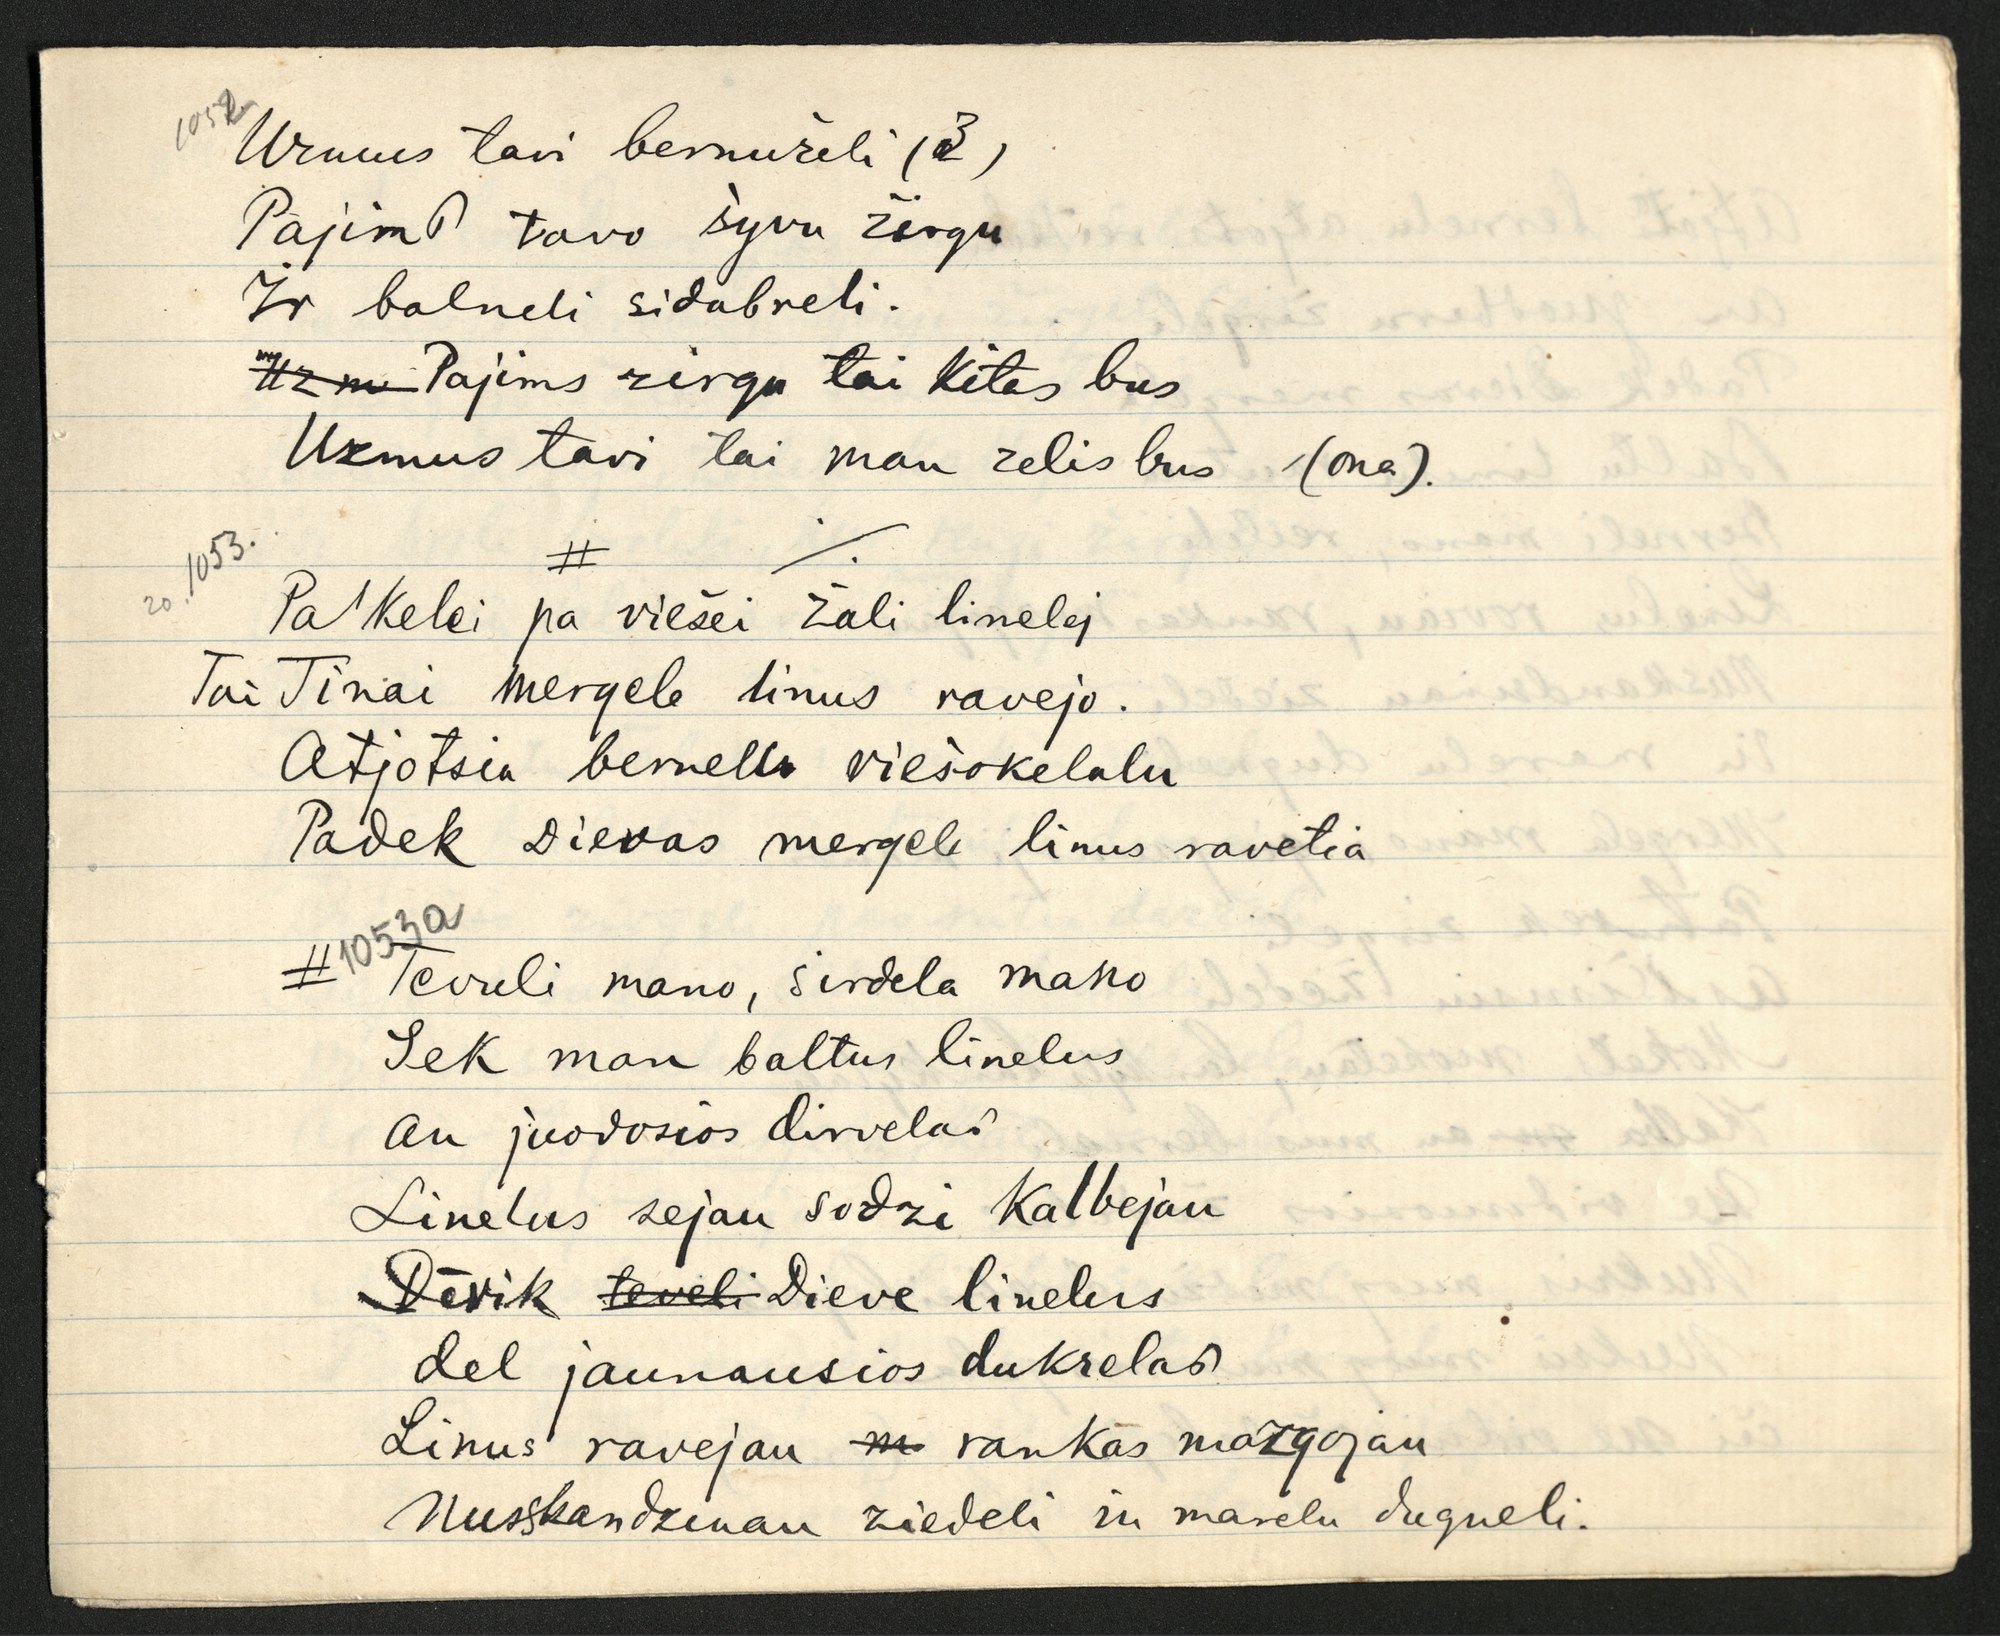 1052
Uzmus tavi bernuželi (3)
Pajims tavo šyvu žirgu
Ir balneli sidabreli.
Uzm Pajims zirgu tai kitas bus
Uzmus tavi tai man zelis bus (ona).
# ·/.
20. 1053.
Pa kelei pa viešei žali linelej
Tai Tinai mergele linus ravejo.
Atjotsia bernelu viešokelalu
Padek Dievas mergele linus ravetia
# 1053a
Tevuli mano, širdela mano
Sek man baltus linelus
an juodosios dirvelas
Linelus sejau sodzi kalbejau
Dēvik teveli Dieve linelus
del jaunausios dukrelas
Linus ravejau m rankas mazgojau
Nusskandzinau ziedeli in marelu dugneli.